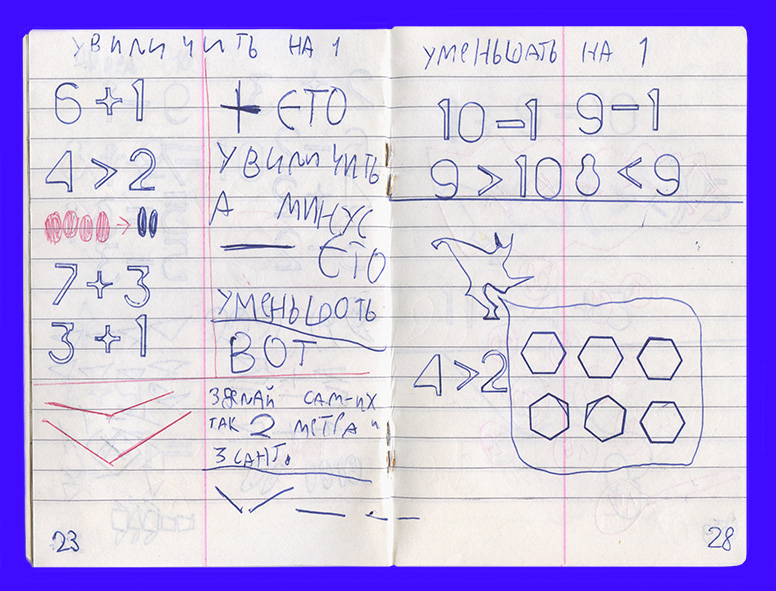 УВИЛИЧИТЬ НА 1
6+1
4>2
7+3
3+1
+ ЄТО
УВИЛИЧИТЬ
А МИНУС
— ЄТО
УМЕНЬШОТЬ
ВОТ
ЗДЕЛАЙ САМ-ИХ
ТАК 2 МЕТРА И
3 САНТ.
23
УМЕНЬШАТЬ НА 1
10-1 9-1
9>10 8<9
4>2
28